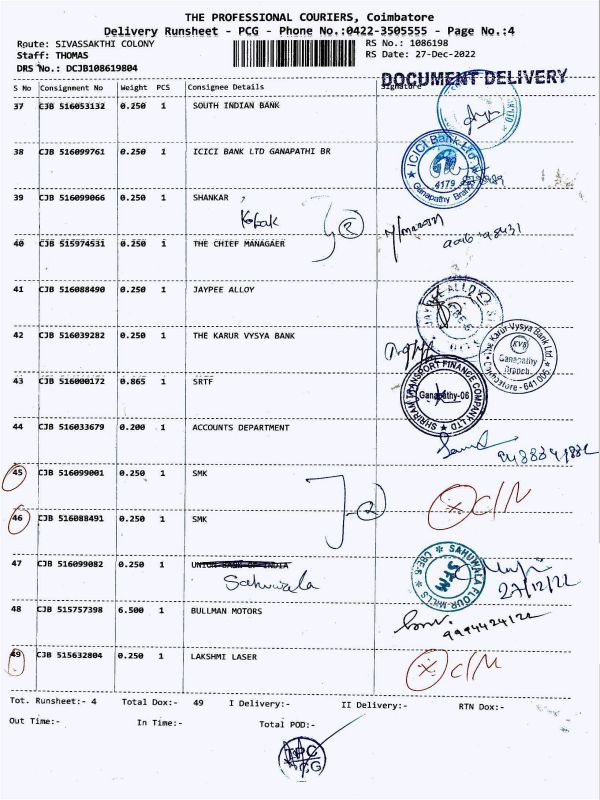 THE PROFESSIONAL COURIERS, Coimbatore
Delivery Runsheet - PCG - Phone No.:0422-3505555 - Page No.:4
Route: SIVASSAKTHI COLONY RS No.: 1086198
Staff: THOMAS RS Date: 27-Dec-2022
DRS No.: DCJB108619804 DOCUMENT DELIVERY
S No Consignment No Weight PCS Consignee Details Signature
37 CJB 516053132 0.250 1 SOUTH INDIAN BANK
38 CJB 516099761 0.250 1 ICICI BANK LTD GANAPATHI BR
ICICI Bank Ltd
4179
Ganapathy Branch
39 CJB 516099066 0.250 1 SHANKAR
Kotak 2
40 CJB 515974531 0.250 1 THE CHIEF MANAGAER
41 CJB 516088490 0.250 1 JAYPEE ALLOY
JAYPEE ALLOY
42 CJB 516039282 0.250 1 THE KARUR VYSYA BANK
The Karur Vysya Bank Ltd
KVB
Ganapathy
Branch
Coimbatore - 641 006
43 CJB 516000172 0.865 1 SRTF
SHRIRAM TRANSPORT FINANCE COMPANY LTD
Ganapathy-06
44 CJB 516033679 0.200 1 ACCOUNTS DEPARTMENT
45 CJB 516099001 0.250 1 SMK
X C/N
46 CJB 516088491 0.250 1 SMK
2
47 CJB 516099082 0.250 1 UNION BANK OF INDIA
Sahuwala
SAHUWALA FLOUR MILLS
CBE-6
SFM
27/12/22
48 CJB 515757398 6.500 1 BULLMAN MOTORS
49 CJB 515632804 0.250 1 LAKSHMI LASER
X C/N
Tot. Runsheet:- 4 Total Dox:- 49 I Delivery:- II Delivery:- RTN Dox:-
Out Time:- In Time:- Total POD:-
TPC
CG